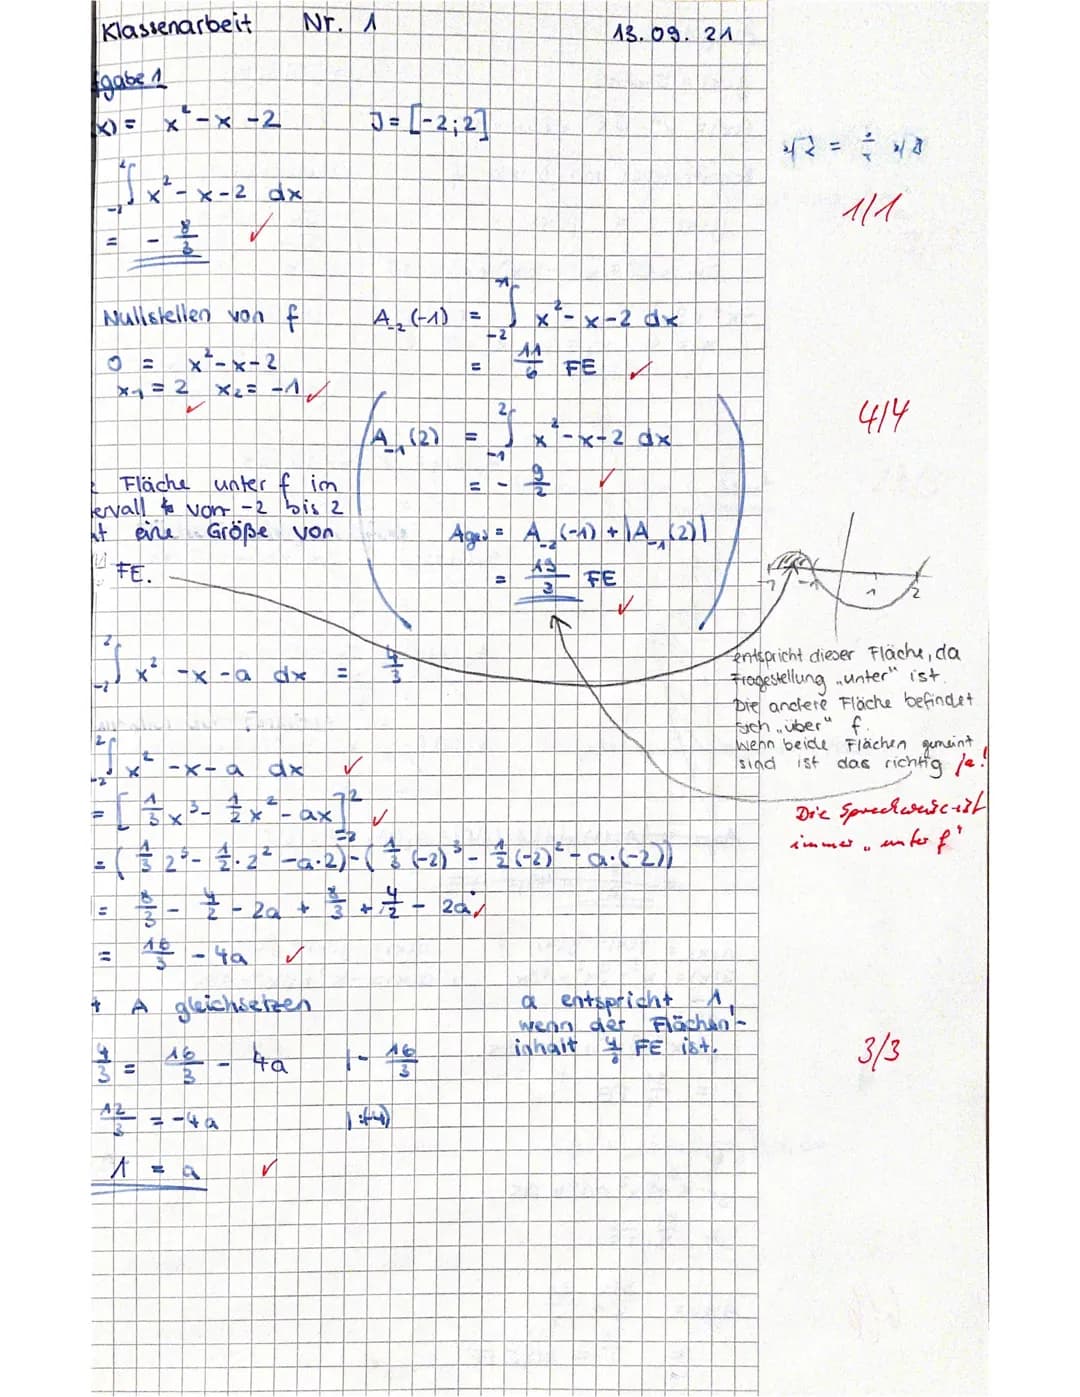 Klassenarbeit Nr. 1 13.09.21
gabe 1
x) = x² - x - 2 J = [-2;2]
₋₂∫² x² - x - 2 dx
= - 8/3 ✓
1/1
Nullstellen von f
0 = x² - x - 2
x₁ = 2 ✓ x₂ = -1 ✓
A₋₂(-1) = ₋₂∫⁻¹ x² - x - 2 dx
= 11/6 FE ✓
(A₋₁(2) = ₋₁∫² x² - x - 2 dx
= - 9/2 ✓
Ages = A₋₂(-1) + |A₋₁(2)|
= 19/3 FE ✓)
4/4
Fläche unter f im
ervall von -2 bis 2
t eine Größe von
FE.
-1 1 2
entspricht dieser Fläche, da
Fragestellung „unter" ist.
Die andere Fläche befindet
sich „über" f.
Wenn beide Flächen gemeint
sind ist das richtig ja!
Die Sprechweise ist
immer „unter f"
₋₂∫² x² - x - a dx = 4/3
₋₂∫² x² - x - a dx ✓
= [1/3 x³ - 1/2 x² - ax]₋₂² ✓
= (1/3 2³ - 1/2 · 2² - a·2) - (1/3 (-2)³ - 1/2 (-2)² - a·(-2))
= 8/3 - 4/2 - 2a + 8/3 + 4/2 - 2a ✓
= 16/3 - 4a ✓
t A gleichsetzen
4/3 = 16/3 - 4a | - 16/3
12/3 = -4a | :(-4)
1 = a ✓
a entspricht 1,
wenn der Flächen-
inhalt 4/3 FE ist.
3/3